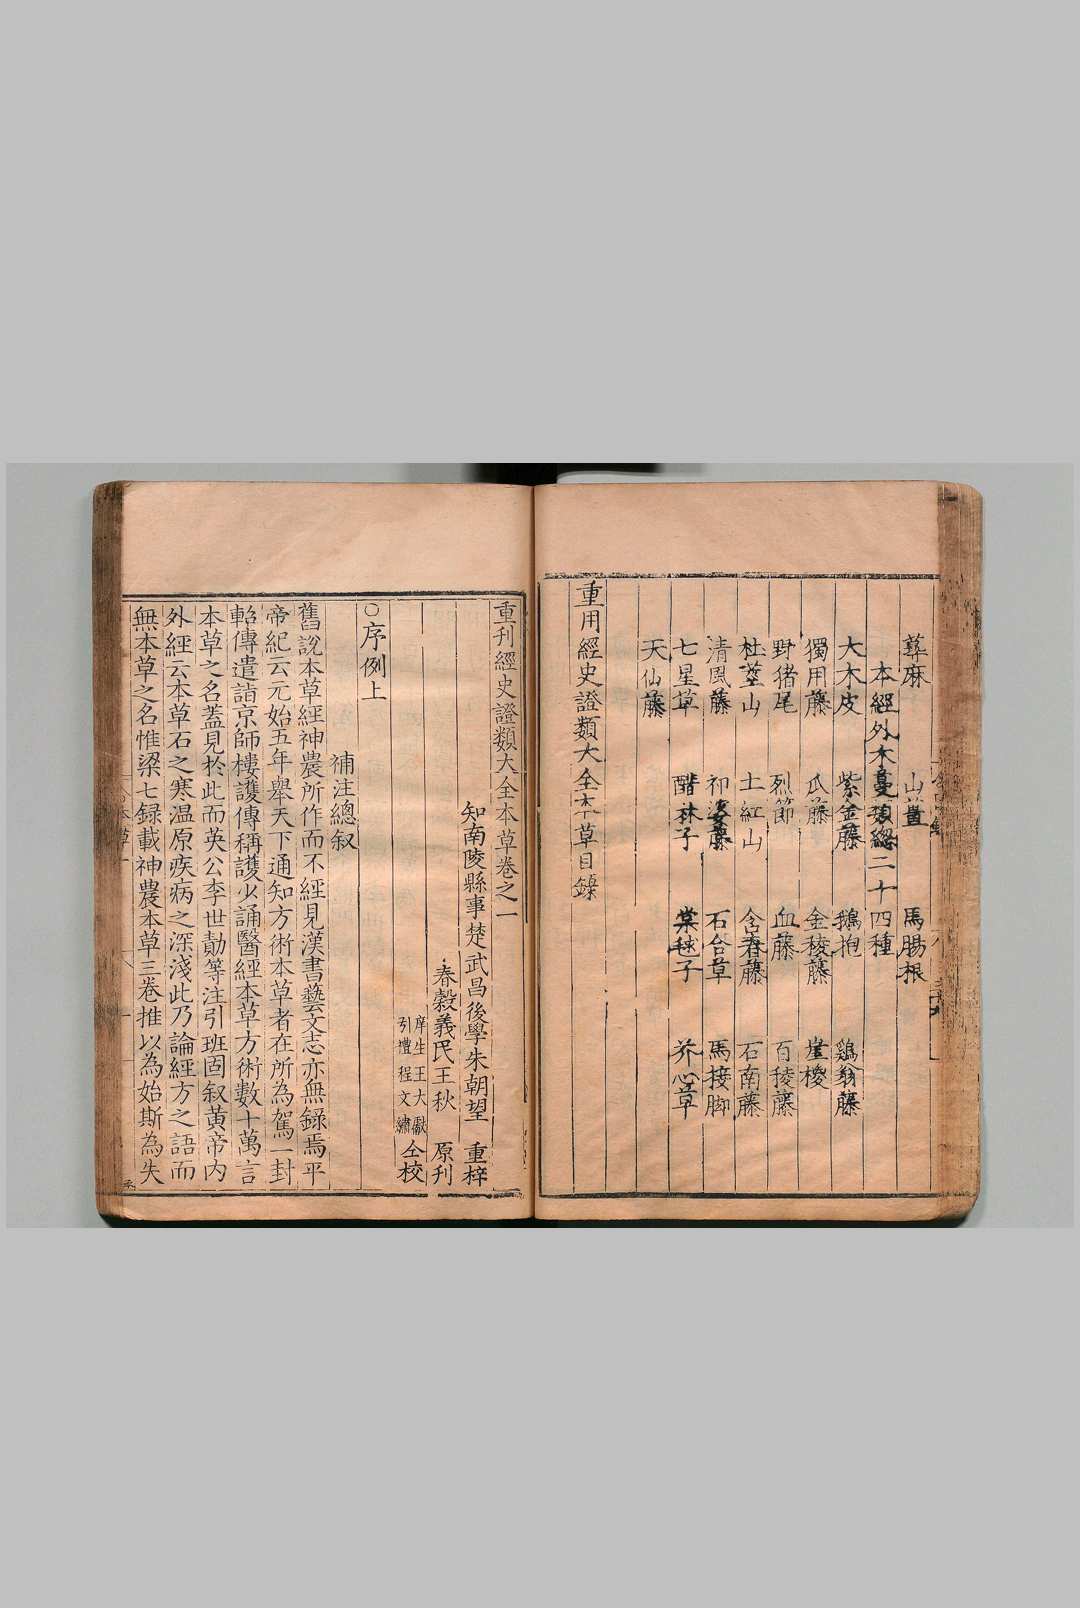 蕣麻 山薑 馬腸根
本經外木蔓類總二十四種
大木皮 紫金藤 鵝抱 鷄翁藤
獨用藤 瓜藤 金稜藤 崖椶
野猪尾 烈節 血藤 百稜藤
杜莖山 土紅山 含春藤 石南藤
清風藤 祁婆藤 石合草 馬接脚
七星草 醋林子 棠毬子 芥心草
天仙藤
重用經史證類大全本草目錄
重刋經史證類大全本草卷之一
知南陵縣事楚武昌後學朱朝望 重梓
春穀義民王秋 原刋
庠生王大獻
引禮程文繡 仝校
○序例上
補注總叙
舊說本草經神農所作而不經見漢書藝文志亦無録焉平
帝紀云元始五年舉天下通知方術本草者在所為駕一封
軺傳遣詣京師樓護傳稱護少誦醫經本草方術數十萬言
本草之名蓋見於此而英公李世勣等注引班固叙黄帝内
外經云本草石之寒温原疾病之深淺此乃論經方之語而
無本草之名惟梁七録載神農本草三卷推以為始斯為失